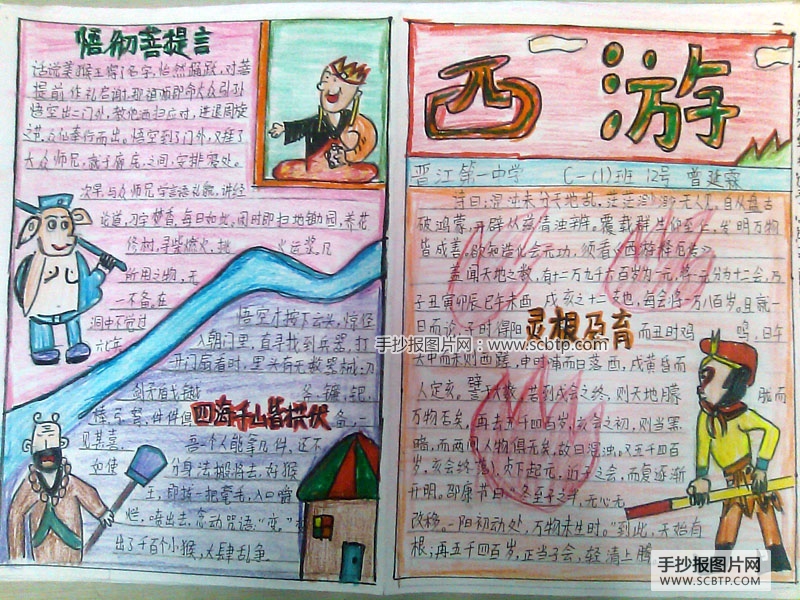 悟彻菩提言
话说美猴王得了名字,怡然踊跃,对菩
提前作礼启谢.那祖师即命大众引孙
悟空出二门外,教他洒扫应对,进退周旋
之节.众仙奉行而出。悟空到了门外,又拜了
大众师兄,就于廊庑之间,安排寝处。
次早,与众师兄学言语礼貌,讲经
论道,习字焚香,每日如此.闲时即扫地锄园,养花
修树,寻柴燃火,挑
火运浆。凡
所用之物,无
一不备.在
洞中不觉过
六七年
悟空才按下云头,
入朝门里,直寻找到兵器,打
开门扇看时,里头有无数器械:刀
剑矛
四海千山皆拱伏
备,一
见甚喜,
吾一个人能拿几件,还
如使
分身法搬将去.好猴
王,即拔一把毫毛,入口嚼
烂,喷出去,念动咒语:"变。"
出了千百个小猴,大肆乱争
西游
晋江第一中学
班 12号
诗曰:混沌未分天地乱,茫茫渺渺无人见.自从盘古
破鸿蒙,开辟从兹清浊辨。覆载群生仰至仁,发明万物
皆成善.欲知造化会元功,须看《西游释厄传》
盖闻天地之数,有十二万九千六百岁为一元.将一元分为十二会,乃
子丑寅卯辰巳午未酉 戌亥之十二支也,每会该一万八百岁。且就一
日而论,子时得阳
灵根孕育
而丑时鸡
鸣,日午
天中而未则西蹉,申时晡而日落酉,戌黄昏而
人定亥。譬于大数,若到戌会之终,则天地朦
胧而
万物否矣。再去五千四百岁,亥会之初,则当黑
暗,而两间人物俱无矣,故曰混沌,又五千四百
岁,亥会将终,贞下起元,近子之会,而复逐渐
开明。邵康节曰"冬至子之半,无心无
改移。一阳初动处,万物未生时。"到此,天始有
根;再五千四百岁,正当子会,轻清上腾
手抄报图片网——www.scbtp.com——
手抄报图片网
WWW.SCBTP.COM